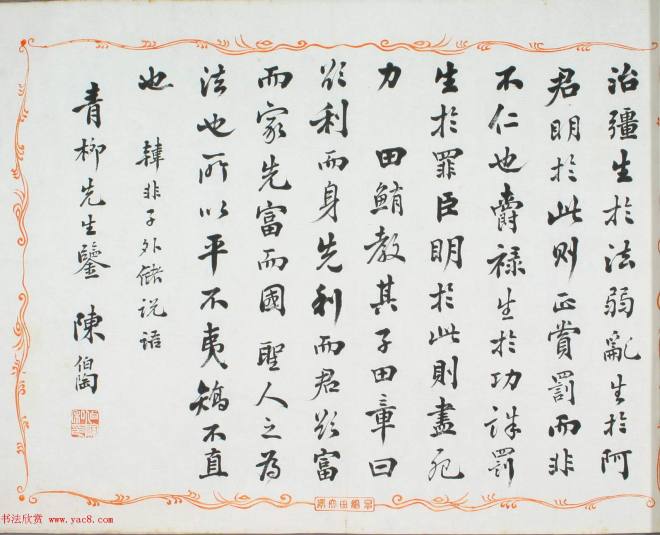 治彊生於法弱亂生於阿
君明於此則正賞罰而非
不仁也爵祿生於功誅罰
生於罪臣明於此則盡死
力 田鮪教其子田章曰
欲利而身先利而君欲富
而家先富而國 聖人之為
法也所以平不夷矯不直
也 韓非子外儲說語
青柳先生鑒 陳伯陶
书法欣赏 www.yac8.com